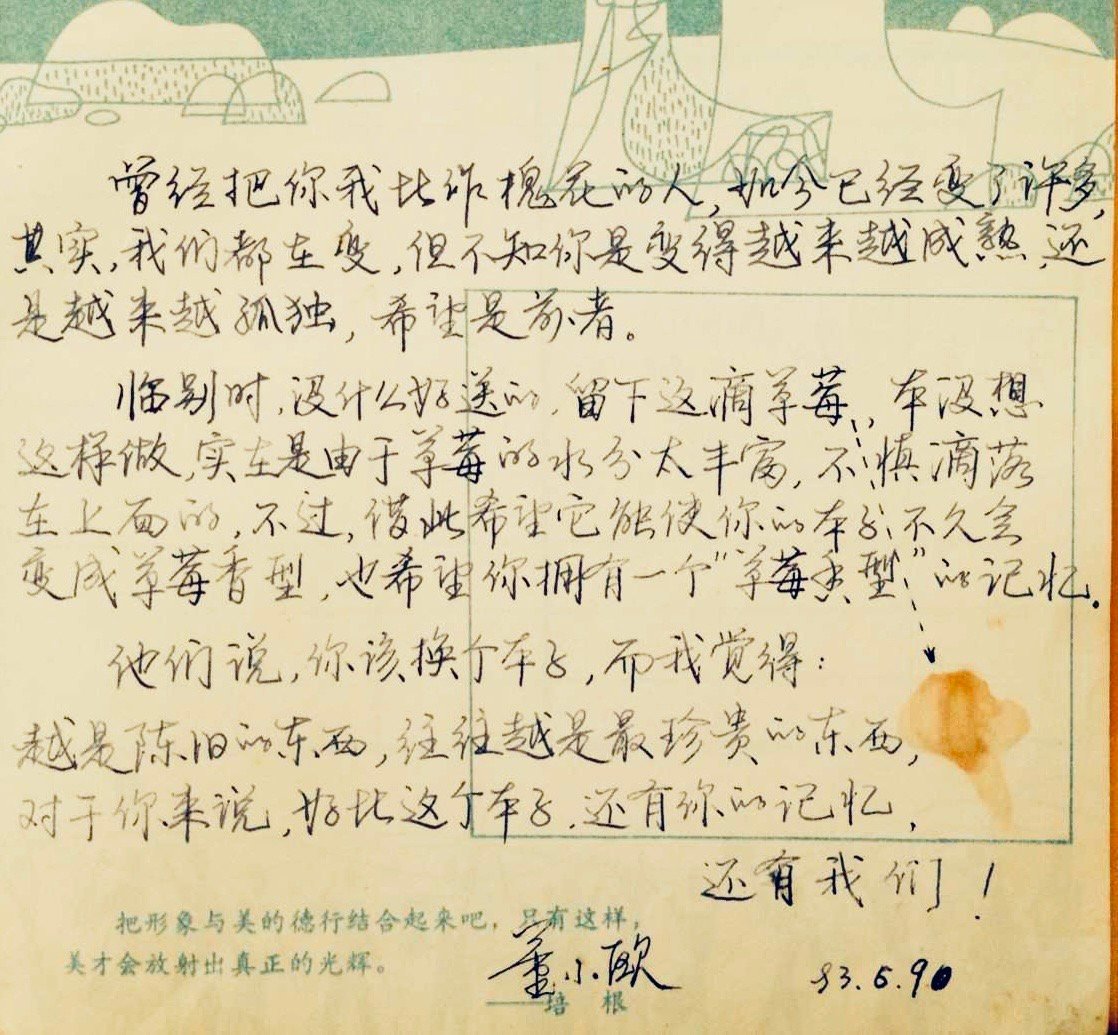 曾经把你我比作槐花的人,如今已经变了许多,
其实,我们都在变,但不知你是变得越来越成熟,还
是越来越孤独,希望是前者。
临别时,没什么好送的,留下这滴草莓,本没想
这样做,实在是由于草莓的水分太丰富,不慎滴落
在上面的,不过,借此希望它能使你的本子不久会
变成草莓香型,也希望你拥有一个"草莓香型"的记忆.
他们说,你该换个本子,而我觉得:
越是陈旧的东西,往往越是最珍贵的东西,
对于你来说,好比这个本子,还有你的记忆,
还有我们!
把形象与美的德行结合起来吧,只有这样,
美才会放射出真正的光辉。
——培 根
董小欧